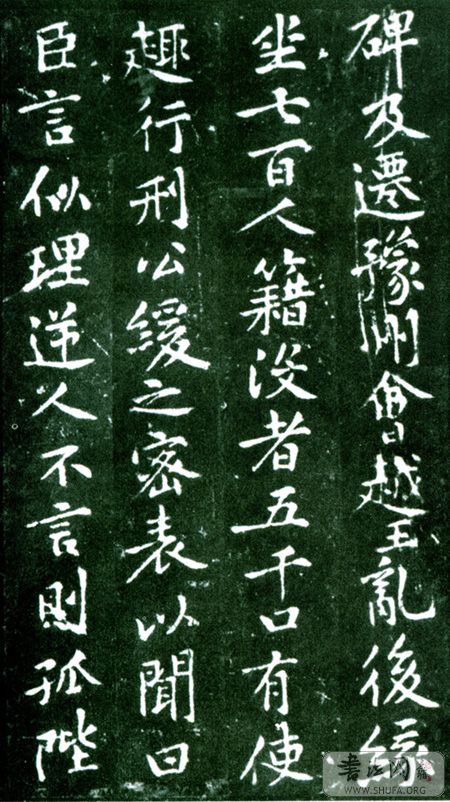 碑及遷豫州會越王亂後緣
坐七百人籍沒者五千口有使
趣行刑公緩之密表以聞曰
臣言似理逆人不言則孤陛
書法网
WWW.SHUFA.ORG